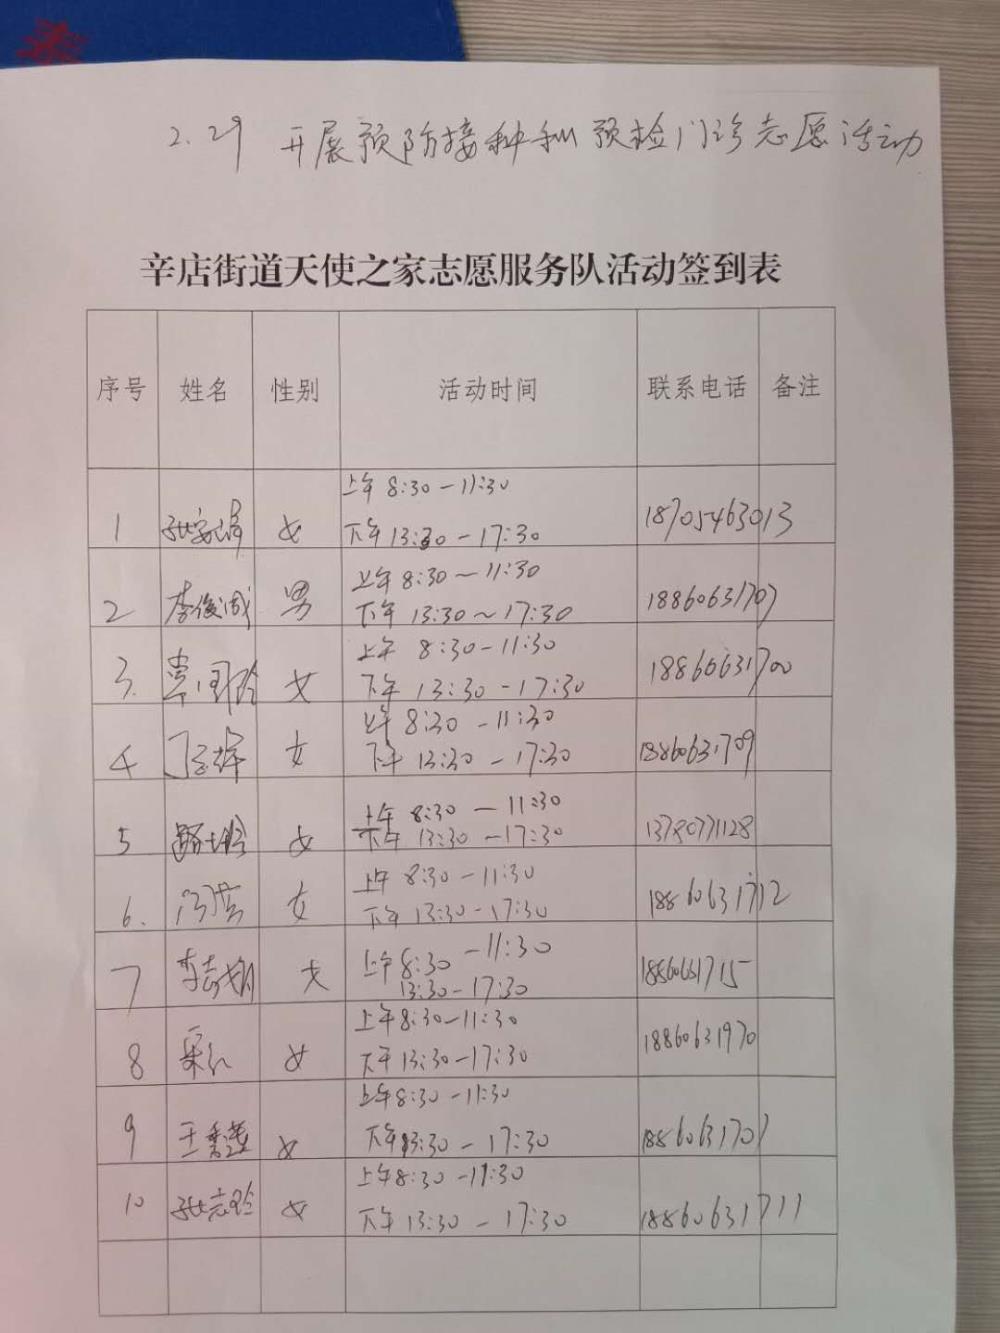 2.29 开展预防接种和预检门诊志愿活动
辛店街道天使之家志愿服务队活动签到表
序号 姓名 性别 活动时间 联系电话 备注
上午 8:30-11:30
1 女 下午 13:30-17:30 18705463013
上午 8:30~11:30
2 李俊成 男 下午 13:30~17:30 18860631707
上午 8:30-11:30
3. 女 下午 13:30-17:30 18860631700
上午 8:30-11:30
4 女 下午 13:30-17:30 18860631709
上午 8:30-11:30
5 女 下午 13:30-17:30 13780771128
上午 8:30-11:30
6. 女 下午 13:30-17:30 18860631712
上午 8:30-11:30
7 女 13:30-17:30 18860631715
上午 8:30-11:30
8 女 下午 13:30-17:30 18860631970
上午 8:30-11:30
9 王秀莲 女 下午 13:30-17:30
上午 8:30-11:30
10 张志玲 女 下午 13:30-17:30 18860631711